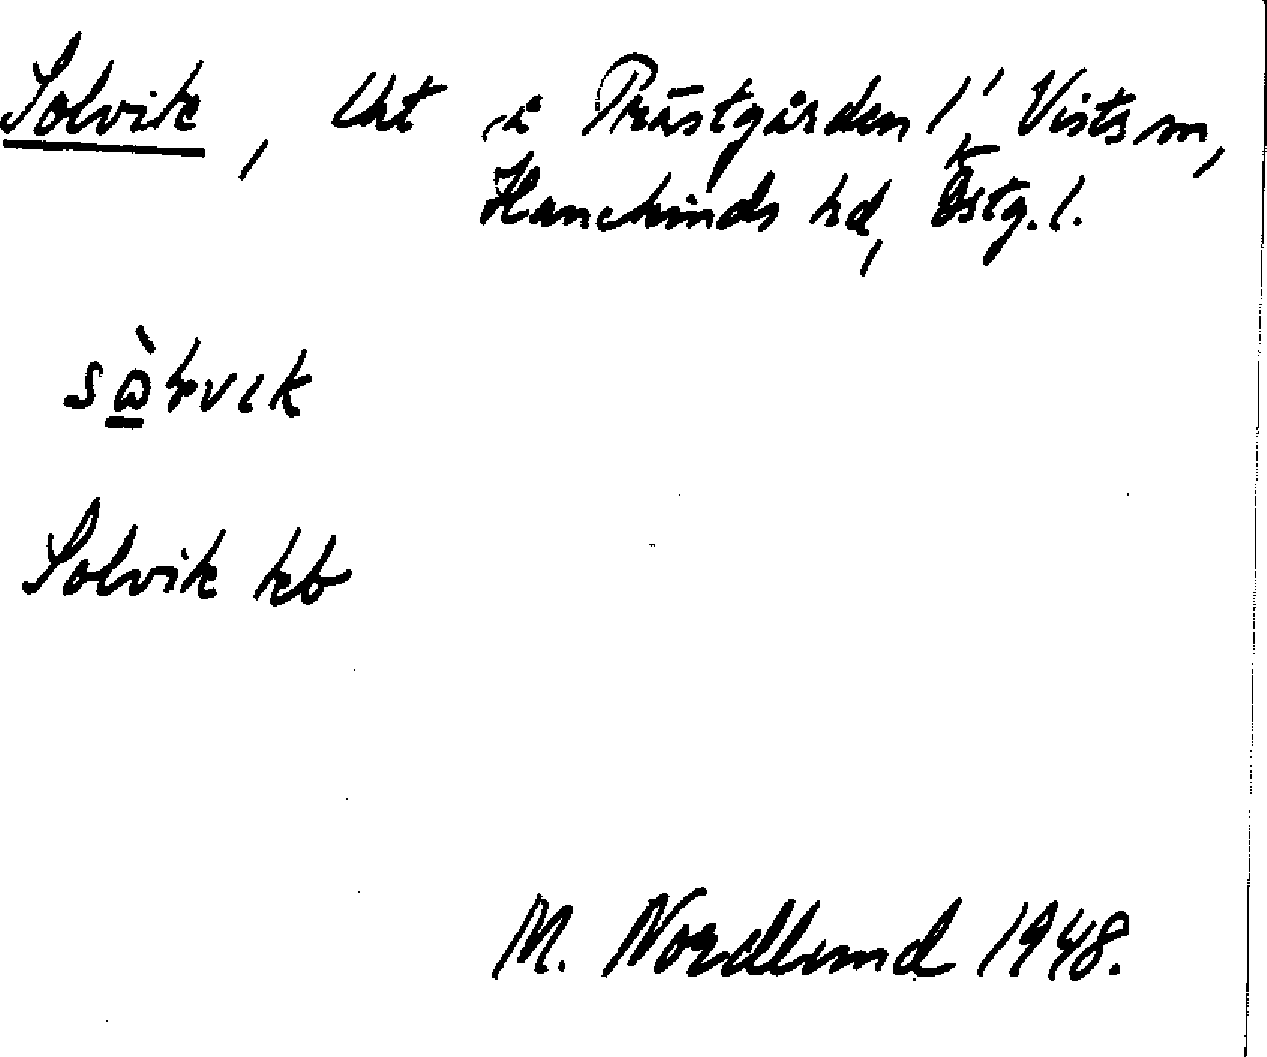 Solvik, lht å Prästgården 1, Vists sn,
Hanekinds hd, Östg. l.
sὼlvık
Solvik kb
M. Nordlund 1948.